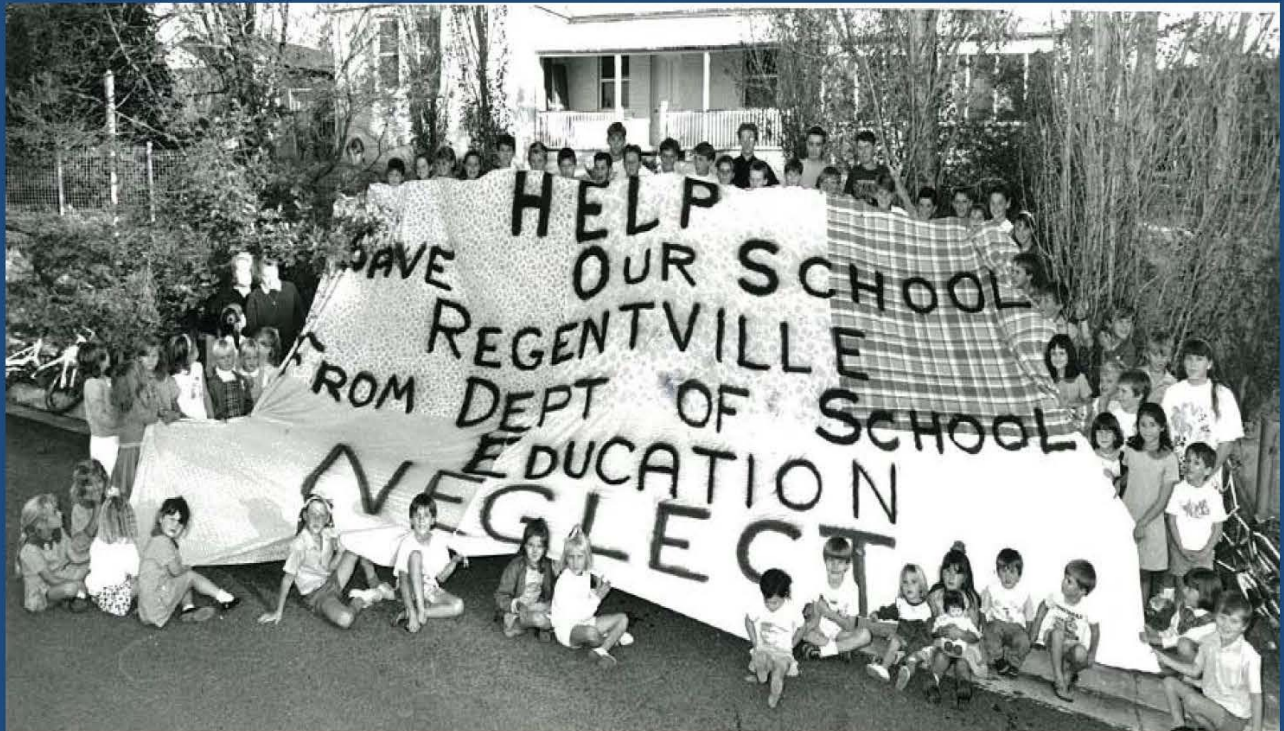 HELP
SAVE OUR SCHOOL
REGENTVILLE
FROM DEPT OF SCHOOL
EDUCATION
NEGLECT